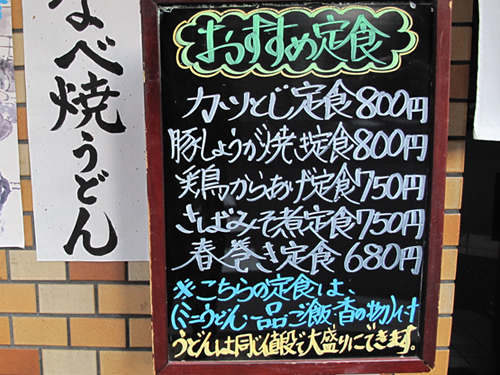 なべ焼うどん
おすすめ定食
カツとじ定食800円
豚しょうが焼き定食800円
鶏からあげ定食750円
さばみそ煮定食750円
春巻き定食 680円
※こちらの定食は、
(ミニうどん 一品 ご飯 香の物)付
うどんは同じ値段で大盛りにできます。